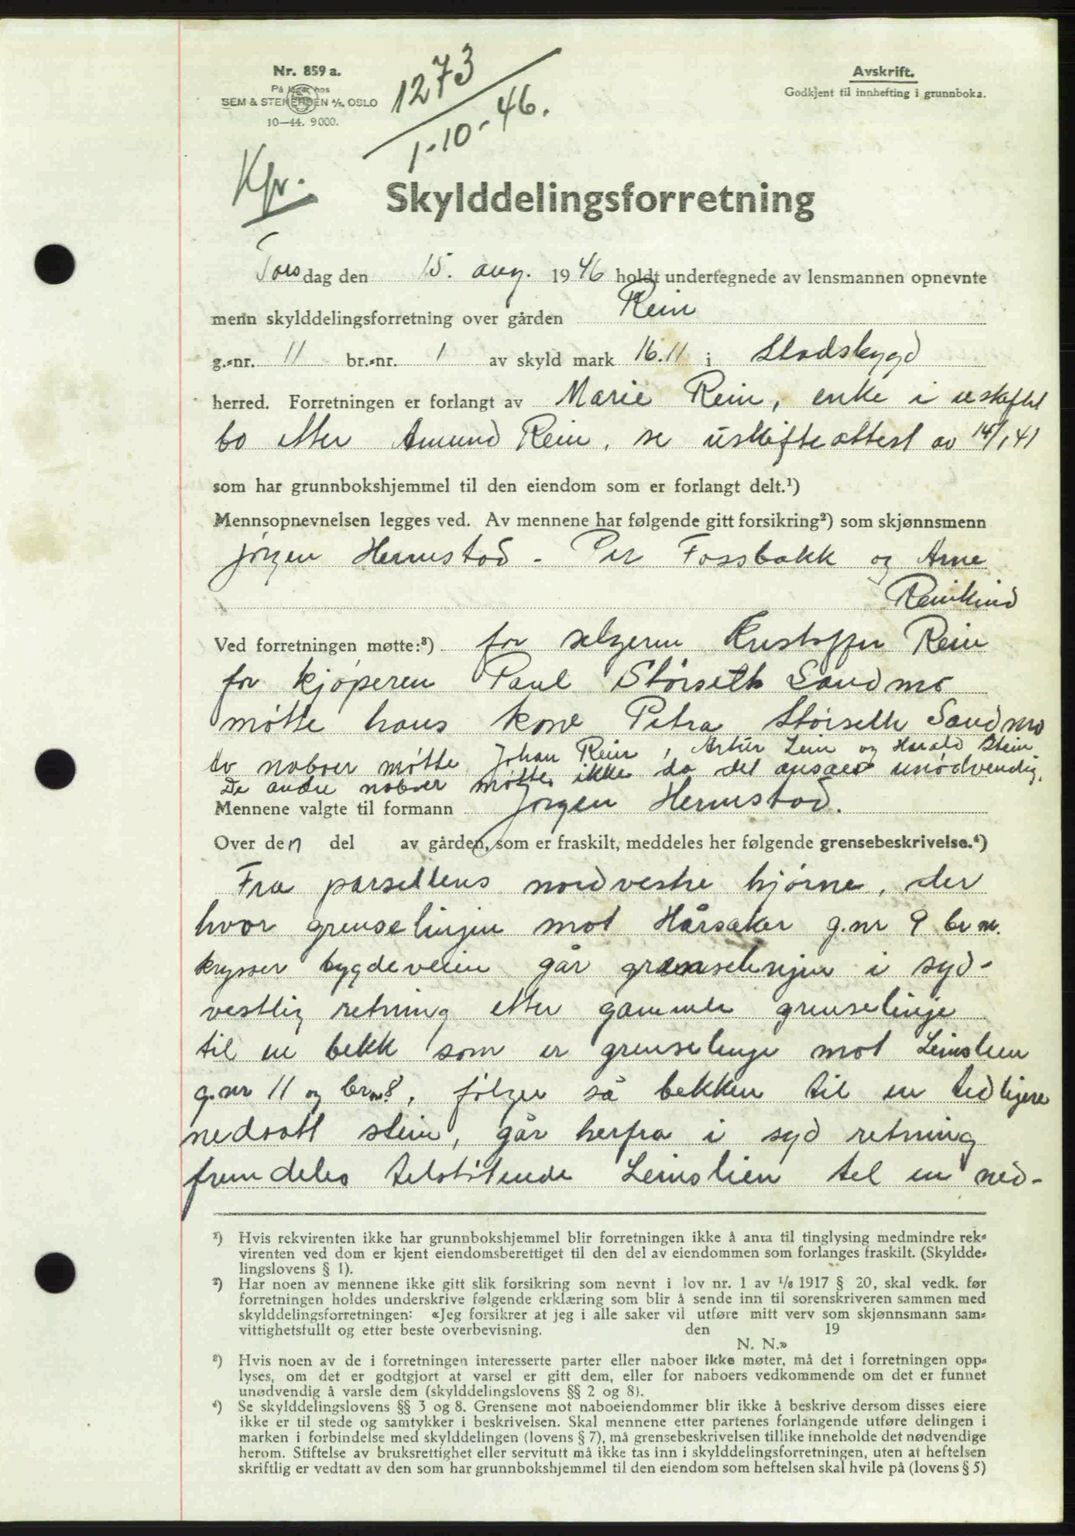 Nr. 859 a.
På lager hos
SEM & STENERSEN A/S, OSLO
10—44. 9000.
1273
1-10-46.
Avskrift.
Godkjent til innhefting i grunnboka.
Kfr.
Skylddelingsforretning
Torsdag den 15. aug. 1946 holdt undertegnede av lensmannen opnevnte
menn skylddelingsforretning over gården Rein
g.-nr. 11 br.-nr. 1 av skyld mark 16.11 i Stadsbygd
herred. Forretningen er forlangt av Marie Rein, enke i uskiftet
bo etter Amund Rein, se uskifteattest av 14/1 41
som har grunnbokshjemmel til den eiendom som er forlangt delt.¹)
Mennsopnevnelsen legges ved. Av mennene har følgende gitt forsikring²) som skjønnsmenn
Jørgen Hermstad - Per Fossbakk og Arne
Reinkind
Ved forretningen møtte:³) for selgeren Kristoffer Rein
for kjøperen Paul Størseth Sandmo
møtte hans kone Petra Størseth Sandmo
Av naboer møtte Johan Rein, Artur Lein og Harald Stein
De andre naboer møtte ikke da det ansaes unødvendig.
Mennene valgte til formann Jørgen Hermstad.
Over den del av gården, som er fraskilt, meddeles her følgende grensebeskrivelse.⁴)
Fra parsellens nordvestre hjørne, der
hvor grenselinjen mot Hårsaker g.nr 9 br nr.
krysser bygdeveien går grenselinjen i syd-
vestlig retning etter gammel grenselinje
til en bekk som er grenselinje mot Leinslien
g.nr 11 og br nr 8, følger så bekken til en tidligere
nedsatt stein, går herfra i syd retning
fremdeles tilstøtende Leinslien til en ned-
¹) Hvis rekvirenten ikke har grunnbokshjemmel blir forretningen ikke å anta til tinglysing medmindre rek-
virenten ved dom er kjent eiendomsberettiget til den del av eiendommen som forlanges fraskilt. (Skyldde-
lingslovens § 1).
²) Har noen av mennene ikke gitt slik forsikring som nevnt i lov nr. 1 av 1/8 1917 § 20, skal vedk. før
forretningen holdes underskrive følgende erklæring som blir å sende inn til sorenskriveren sammen med
skylddelingsforretningen: «Jeg forsikrer at jeg i alle saker vil utføre mitt verv som skjønnsmann sam-
vittighetsfullt og etter beste overbevisning. den 19
N. N.»
³) Hvis noen av de i forretningen interesserte parter eller naboer ikke møter, må det i forretningen opp-
lyses, om det er godtgjort at varsel er gitt dem, eller for naboers vedkommende om det er funnet
unødvendig å varsle dem (skylddelingslovens §§ 2 og 8).
⁴) Se skylddelingslovens §§ 3 og 8. Grensene mot naboeiendommer blir ikke å beskrive dersom disses eiere
ikke er til stede og samtykker i beskrivelsen. Skal mennene etter partenes forlangende utføre delingen i
marken i forbindelse med skylddelingen (lovens § 7), må grensebeskrivelsen tillike inneholde det nødvendige
herom. Stiftelse av bruksrettighet eller servitutt må ikke tas inn i skylddelingsforretningen, uten at heftelsen
skriftlig er vedtatt av den som har grunnbokshjemmel til den eiendom som heftelsen skal hvile på (lovens § 5)